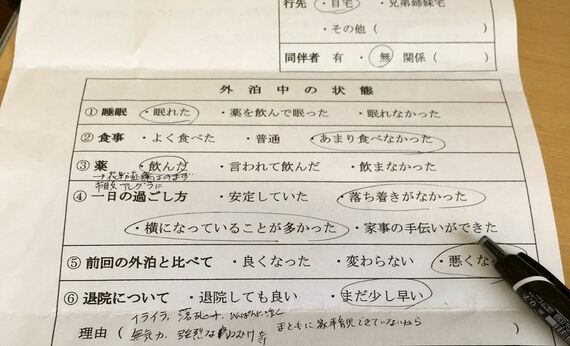 行先 ・自宅 ・兄弟姉妹宅
・その他（ ）
同伴者 有 ・ 無 関係（ ）
外泊中の状態
① 睡眠 ・眠れた ・薬を飲んで眠った ・眠れなかった
② 食事 ・よく食べた ・普通 ・あまり食べなかった
③ 薬 ・飲んだ ・言われて飲んだ ・飲まなかった
④ 一日の過ごし方 ・安定していた ・落ち着きがなかった
・横になっていることが多かった ・家事の手伝いができた
⑤ 前回の外泊と比べて ・良くなった ・変わらない ・悪くな
⑥ 退院について ・退院しても良い ・まだ少し早い
イライラ、
理由（ 無気力、強烈な まともに 家事 できていないから